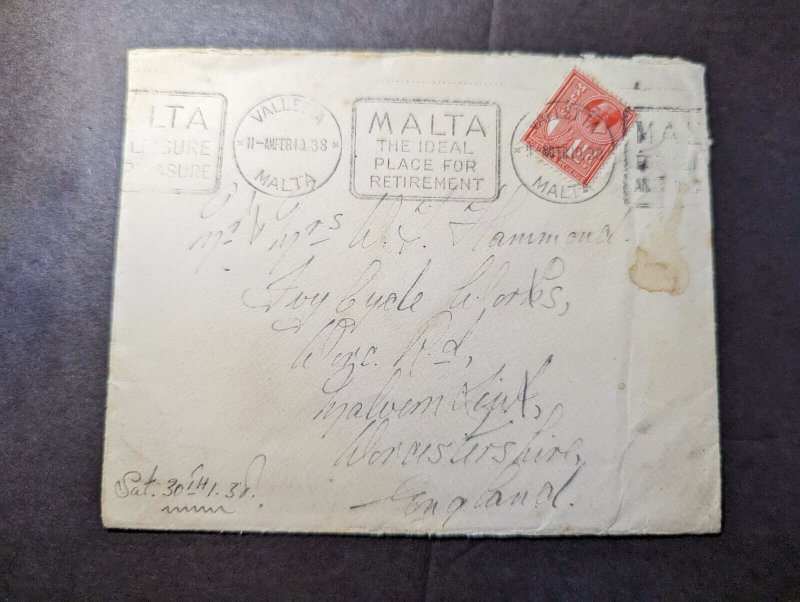 LTA
VALLETTA
11-AM FE 1 38
MALTA
MALTA
THE IDEAL
PLACE FOR
RETIREMENT
MALTA
MAL
Mr & Mrs W. Hammond.
Ivy Cycle Works,
Worc. Rd,
Malvern Link,
Worcestershire,
England.
Sat. 30TH 1. 38.